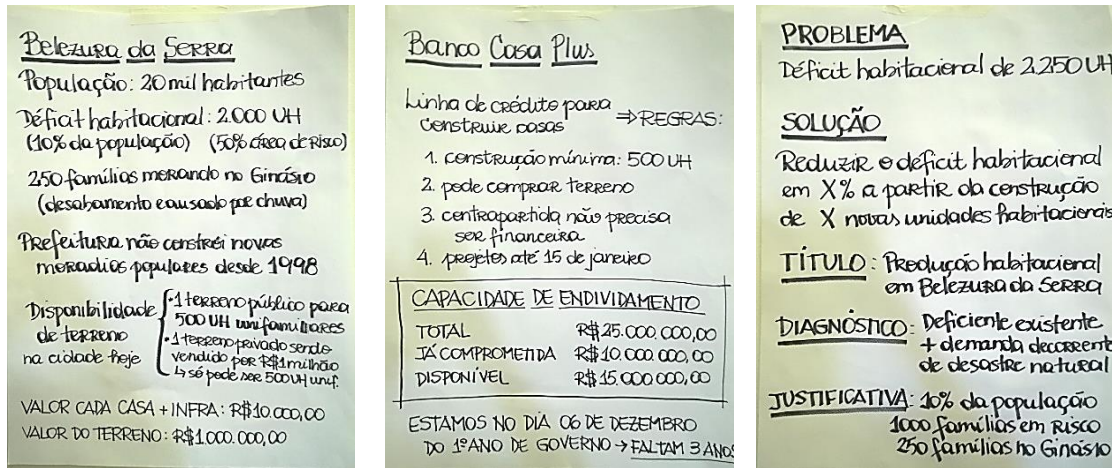 Belezura da Serra
População: 20 mil habitantes
Déficit habitacional: 2.000 UH
(10% da população) (50% área de risco)
250 famílias morando no Ginásio
(desabamento causado por chuva)
Prefeitura não constrói novas
moradias populares desde 1998
Disponibilidade
de terreno
na cidade hoje
• 1 terreno público para
500 UH unifamiliares
• 1 terreno privado sendo
vendido por R$1 milhão
↳ só pode ser 500 UH unif.
VALOR CADA CASA + INFRA: R$10.000,00
VALOR DO TERRENO: R$1.000.000,00
Banco Casa Plus
Linha de crédito para
construir casas
⇒ REGRAS:
1. construção mínima: 500 UH
2. pode comprar terreno
3. contrapartida não precisa
ser financeira
4. projetos até 15 de janeiro
CAPACIDADE DE ENDIVIDAMENTO
TOTAL R$25.000.000,00
JÁ COMPROMETIDA R$10.000.000,00
DISPONÍVEL R$15.000.000,00
ESTAMOS NO DIA 06 DE DEZEMBRO
DO 1º ANO DE GOVERNO → FALTAM 3 ANOS
PROBLEMA
Déficit habitacional de 2.250 UH
SOLUÇÃO
Reduzir o déficit habitacional
em X% a partir da construção
de X novas unidades habitacionais
TÍTULO: Produção habitacional
em Belezura da Serra
DIAGNÓSTICO: Deficiente existente
+ demanda decorrente
de desastre natural
JUSTIFICATIVA: 10% da população
1000 famílias em risco
250 famílias no Ginásio